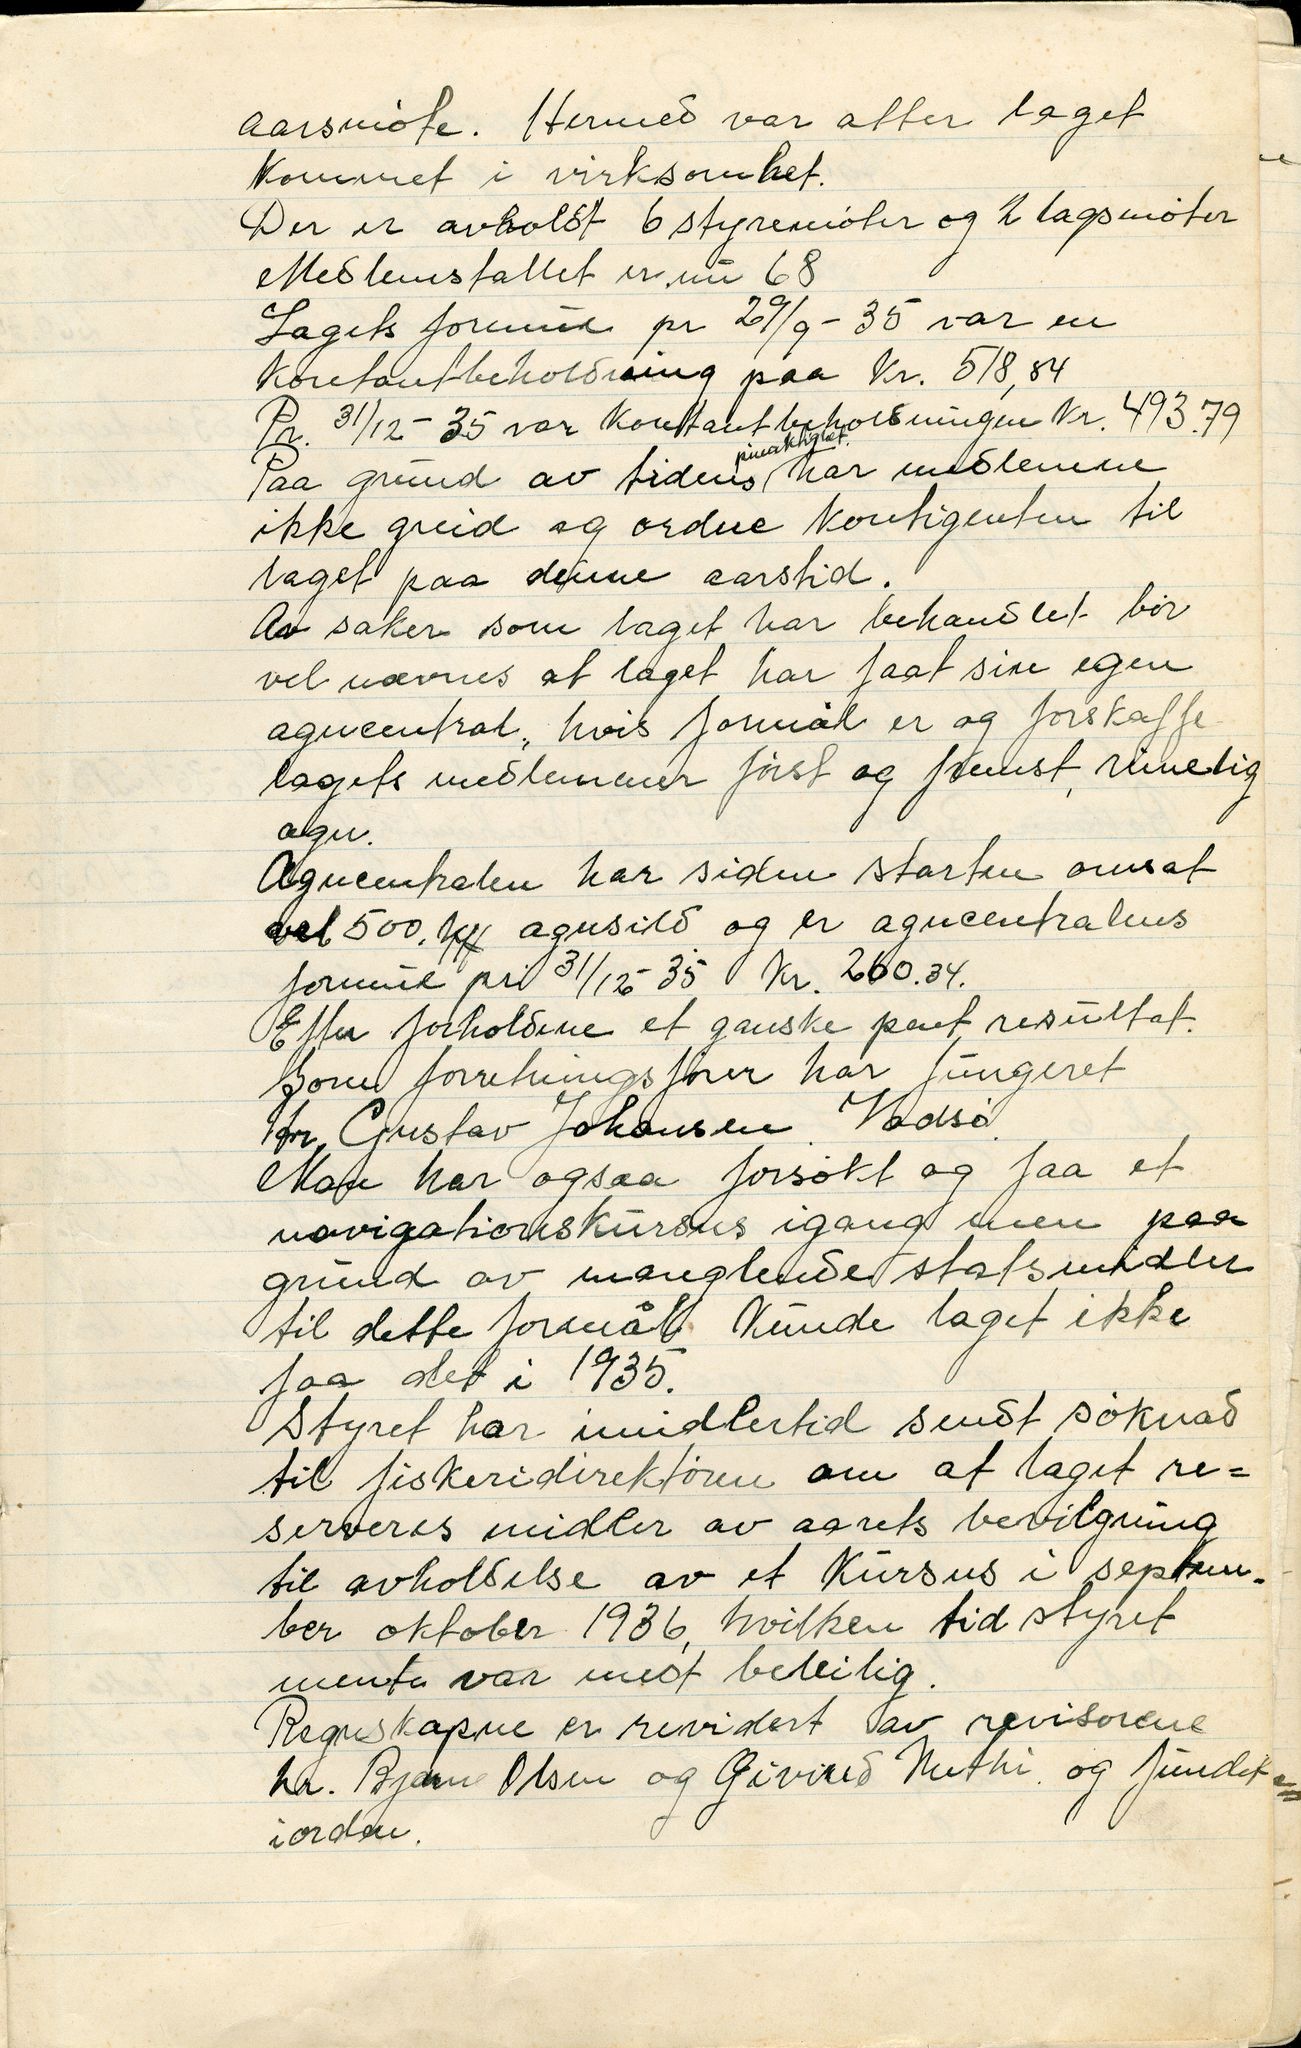 aarsmöte. Hermed var atter laget
kommet i virksomhet.
Der er avholdt 6 styremöter og 2 lagsmöter
Medlemstallet er nu 68
Lagets formue pr 29/9-35 var en
kontantbeholdning paa kr. 518,84
Pr. 31/12-35 var kontantbeholdningen kr. 493.79
Paa grund av tidens har medlemene
ikke greid og ordne kontigenten til
laget paa denne aarstid.
Av saker som laget har behandlet bör
vel nævnes at laget har faat sin egen
agncentral, hvis formål er og forskaffe
lagets medlemmer först og fremst, rimelig
agn.
Agncentralen har siden starten omsat
vel 500. agnsild og er agncentralens
formue pr. 31/12-35 kr. 260.34.
Efter forholdene et ganske pent resultat.
Som forretningsförer har fungeret
hr. Gustav Johansen Vadsö.
Man har ogsaa forsökt og faa et
navigationskursus igang men paa
grund av manglende statsmidler
til dette formål kunde laget ikke
faa det i 1935.
Styret har imidlertid sendt söknad
til fiskeridirektören om at laget re=
serveres midler av aarets bevilgning
til avholdelse av et kursus i septem-
ber oktober 1936, hvilken tid styret
mente var mest beleilig.
Regnskapne er revidert av revisorene
hr. Bjarne Olsen og og fundet
iorden.